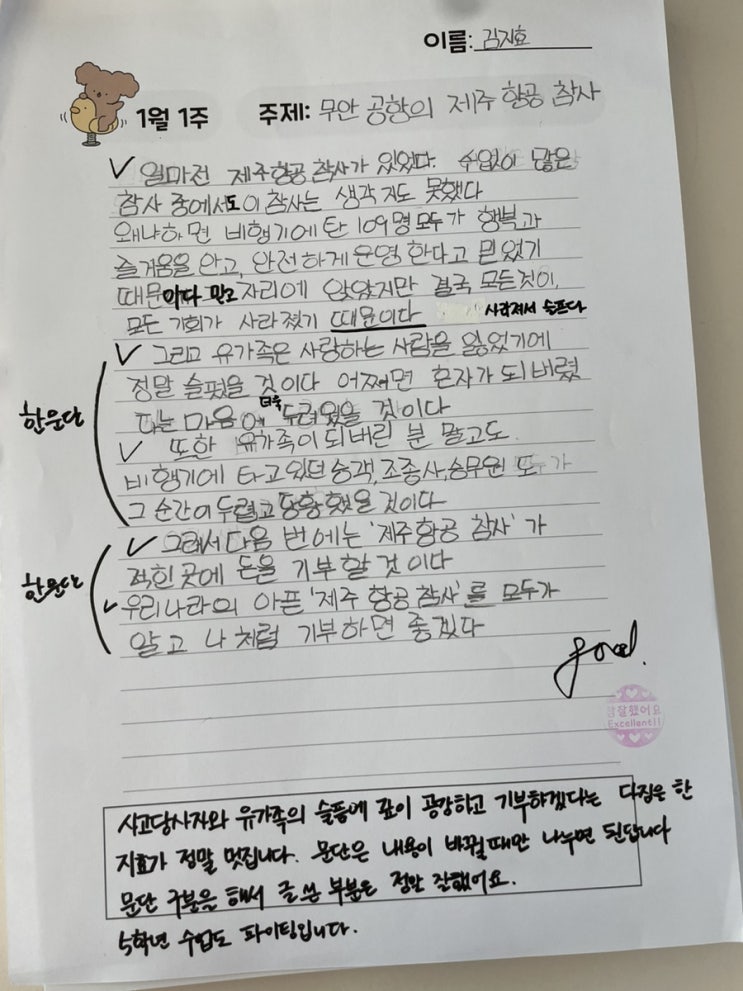 이름: 김지효
1월 1주 주제: 무안 공항의 제주 항공 참사
얼마전 제주항공 참사가 있었다. 수없이 많은
참사 중에서도 이 참사는 생각지도 못했다
왜냐하면 비행기에 탄 109명 모두가 행복과
즐거움을 안고, 안전하게 운영 한다고 믿었기
때문이다 믿고 자리에 앉았지만 결국 모든것이,
모든 기회가 사라졌기 때문이다 사라져서 슬프다
그리고 유가족은 사랑하는 사람을 잃었기에
정말 슬펐을 것이다 어쩌면 혼자가 되버렸
다는 마음에 더욱 두려웠을 것이다
한문단
또한 유가족이 되버린 분 말고도
비행기에 타고 있던 승객, 조종사, 승무원 모두가
그 순간이 두렵고 당황했을 것이다
그래서 다음 번에는 '제주항공 참사'가
적힌 곳에 돈을 기부 할 것 이다
한문단
우리나라의 아픈 '제주 항공 참사'를 모두가
알고 나처럼 기부하면 좋겠다
good.
참잘했어요
Excellent!!
사고당사자와 유가족의 슬픔에 깊이 공감하고 기부하겠다는 다짐을 한
지효가 정말 멋집니다. 문단은 내용이 바뀔때만 나누면 된답니다
문단 구분을 해서 글 쓴 부분은 정말 잘했어요.
5학년 수업도 파이팅입니다.